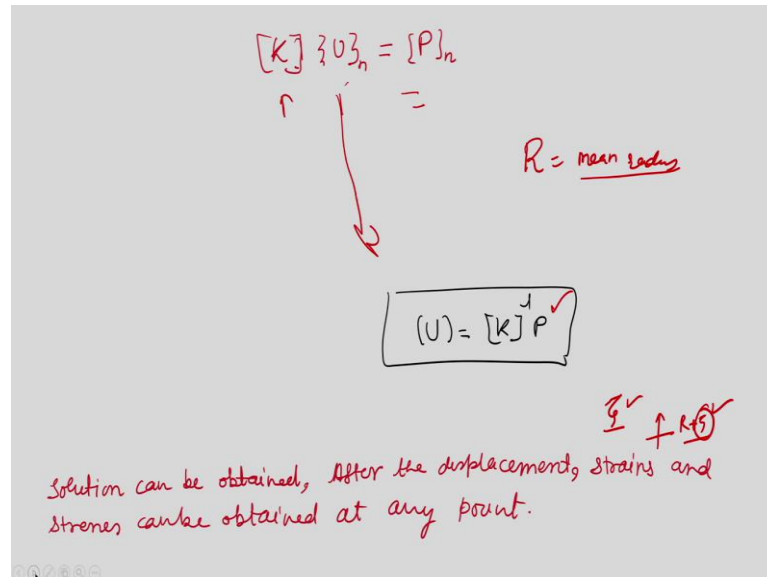 [K] {U}n = {P}n
R = mean radius
(U) = [K]⁻¹ P
ξ R+ξ
Solution can be obtained, After the displacement, strains and
stresses can be obtained at any point.